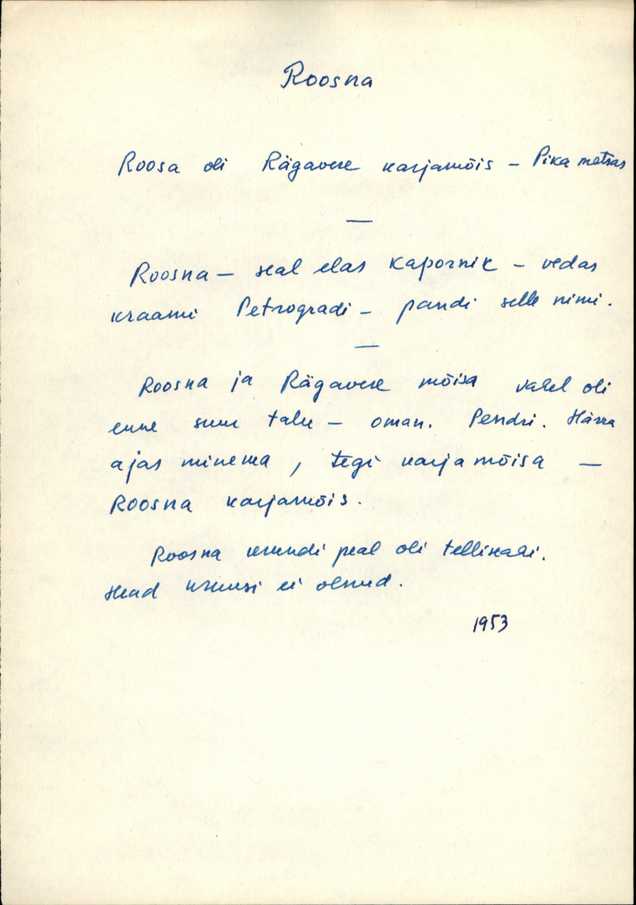 Roosna
Roosa oli Rägavere karjamõis – Pika metsas
—
Roosna – seal elas kapornik – vedas
kraami Petrogradi – pandi selle nimi.
—
Roosna ja Rägavere mõisa vahel oli
enne suur talu – oman. Pendri. Härra
ajas minema, tegi karja mõisa –
Roosna karjamõis.
Roosna krundi peal oli
Head kruusi ei olnud.
1953